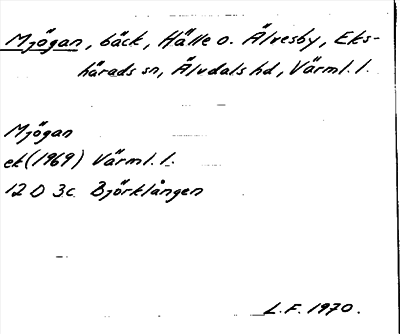 Mjögan, bäck, Hälle o. Älvesby, Eks-
härads sn, Älvdals hd, Värml. l.
Mjögan
ek (1969) Värml. l.
12 D 3c Björklången
L.F. 1970.